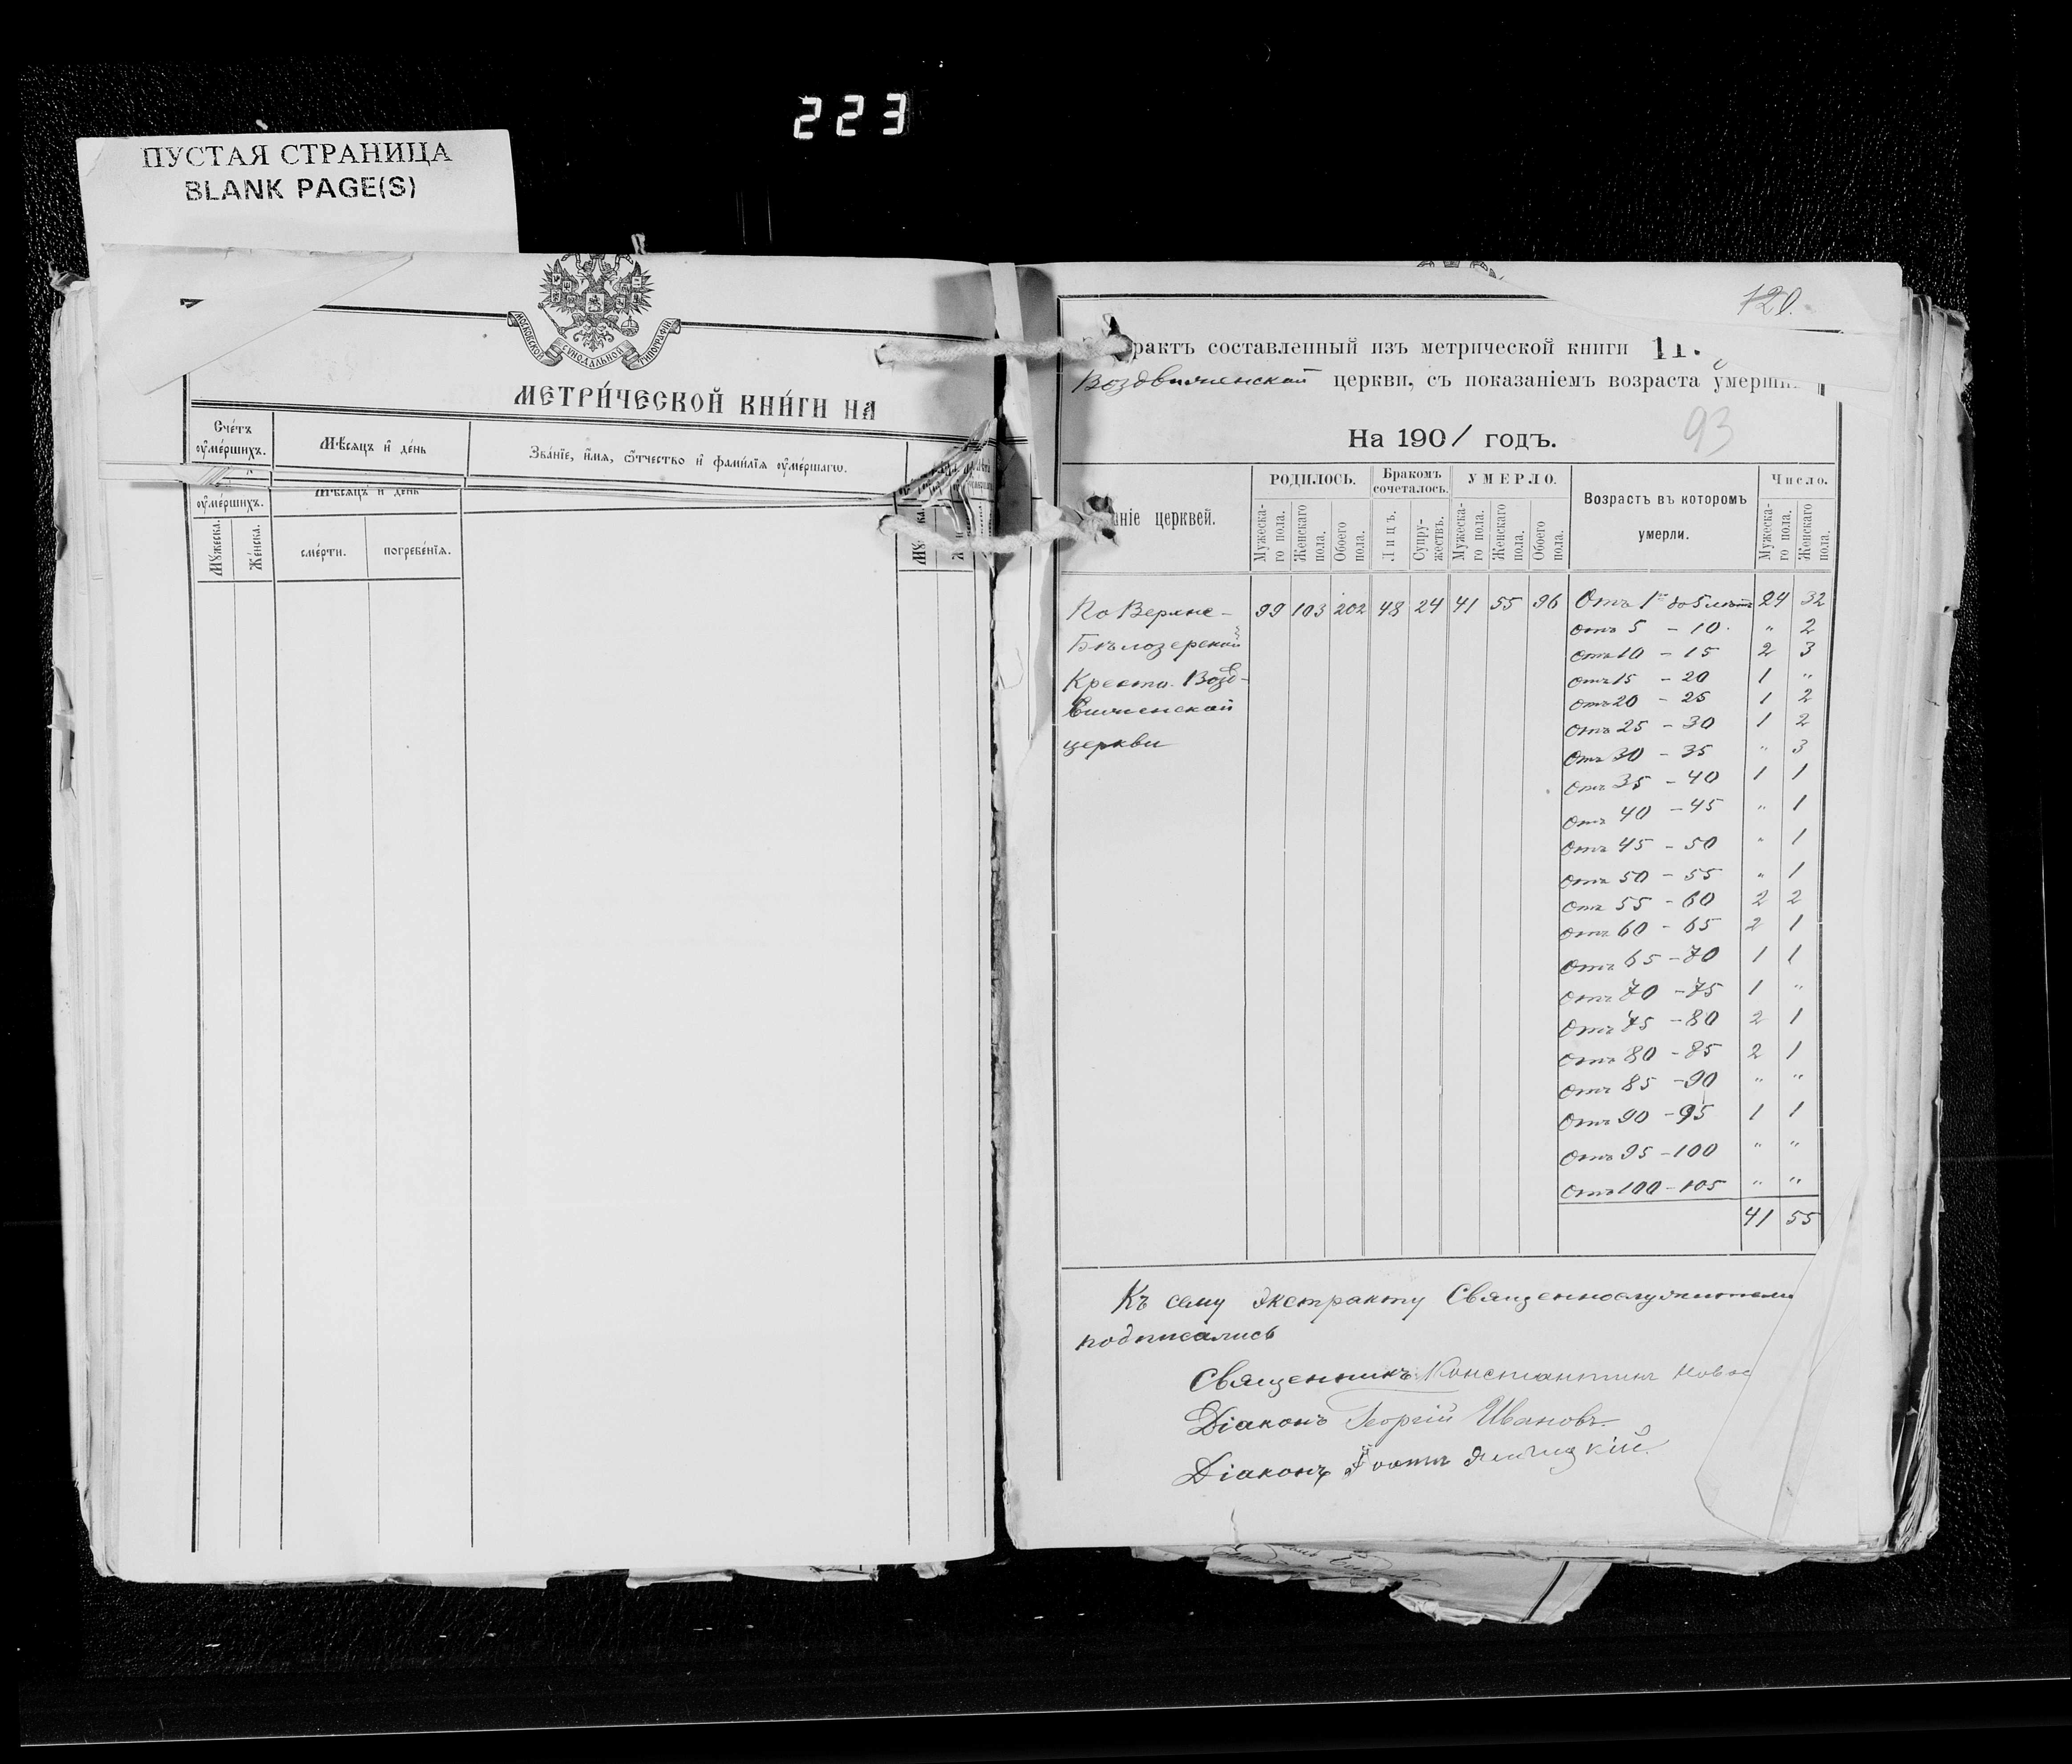 223
ПУСТАЯ СТРАНИЦА
BLANK PAGE(S)
МОСКОВСКОЙ СУНОДАЛЬНОЙ ТИПОГРАФІИ
МЕТРИ́ЧЕСКОЙ КНИ́ГИ НА
Счéтъ оу҆мéршихъ.
Мѣ́сяцъ и҆ дéнь
Звáнїе, и҆́мя, ѻ҆́тчество и҆ фами́лїя оу҆мéршагѡ.
оу҆мéршихъ.
Мѣ́сяцъ и҆ дéнь
Мꙋжеска.
Жéнска.
смéрти.
погребéнїя.
120.
рактъ составленный изъ метрической книги 11.
Воздвиженской церкви, съ показаніемъ возраста умерши
93
На 1901 годъ.
аніе церквей.
РОДИЛОСЬ.
Бракомъ сочеталось.
УМЕРЛО.
Возрастъ въ которомъ умерли.
Число.
Мужескаго пола.
Женскаго пола.
Обоего пола.
Лицъ.
Супружествъ.
Мужескаго пола.
Женскаго пола.
Обоего пола.
Мужескаго пола.
Женскаго пола.
По Верхне- 99 103 202 48 24 41 55 96 Отъ 1го до 5 лѣтъ 24 32
Отъ 5 – 10. " 2
Бѣлозерской
Отъ 10 – 15 2 3
Кресто-Возд-
Отъ 15 – 20 1 "
Отъ 20 – 25 1 2
виженской
Отъ 25 – 30 1 2
церкви
Отъ 30 – 35 " 3
Отъ 35 – 40 1 1
Отъ 40 – 45 " 1
Отъ 45 – 50 " 1
Отъ 50 – 55 " 1
Отъ 55 – 60 2 2
Отъ 60 – 65 2 1
Отъ 65 – 70 1 1
Отъ 70 – 75 1 "
Отъ 75 – 80 2 1
Отъ 80 – 85 2 1
Отъ 85 – 90 " "
Отъ 90 – 95 1 1
Отъ 95 – 100 " "
Отъ 100 – 105 " "
41 55
Къ сему экстракту Священнослужители
подписались
Священникъ Константинъ Новос
Діаконъ Георгій Ивановъ.
Діаконъ